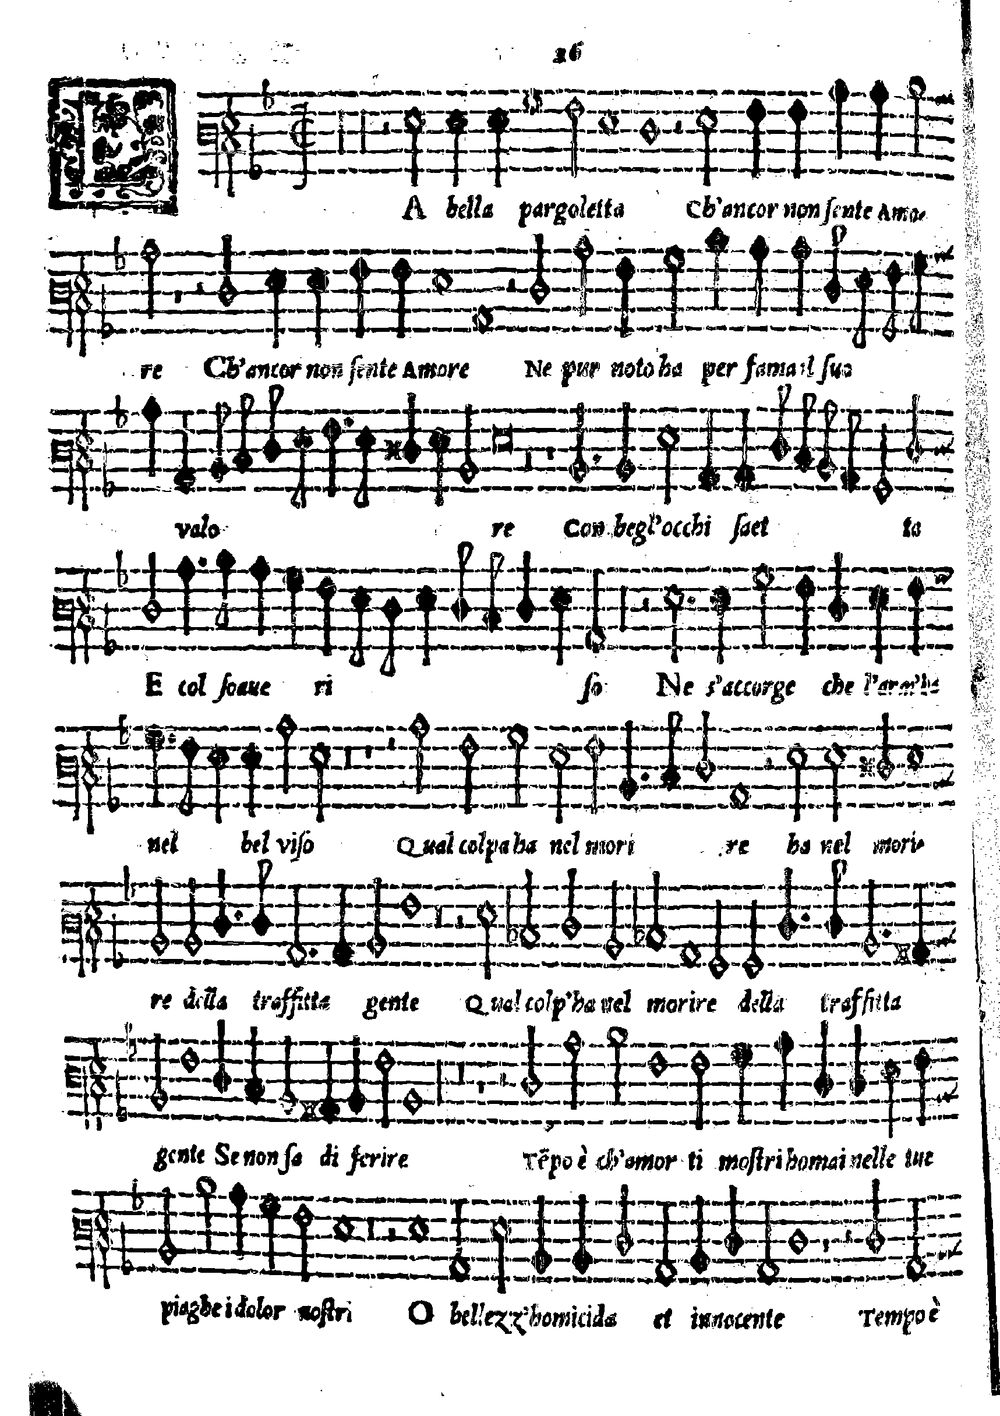 26
L A bella pargoletta Ch'ancor non sente Amo-
re Ch'ancor non sente Amore Ne pur noto ha per fama il suo
valo re Con begl'occhi saet ta
E col soaue ri so Ne s'accorge che l'arm'ha
nel bel viso Qual colpa ha nel mori re ha nel mori-
re della traffitta gente Qual colp'ha nel morire della traffitta
gente Se non sa di ferire Tẽpo è ch'amor ti mostri homai nelle tue
piaghe i dolor nostri O bellezz'homicida et innocente Tempo è